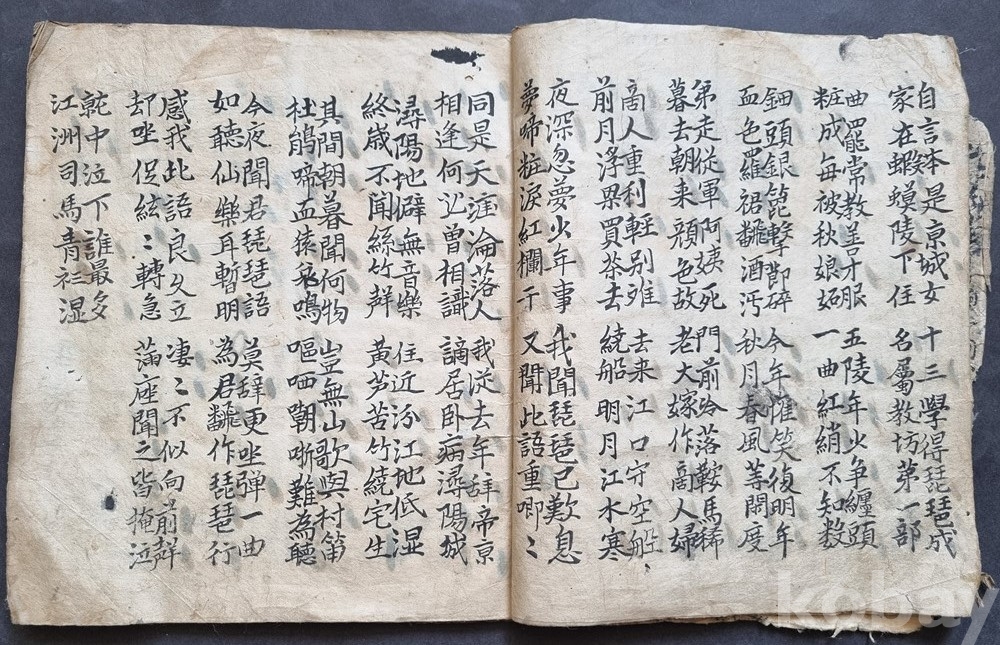 自言本是京城女 十三學得琵琶成
家在蝦蟆陵下住 名屬教坊第一部
曲罷常教善才服 五陵年少争纏頭
粧成每被秋娘妬 一曲紅綃不知数
鈿頭銀篦擊節碎 今年惟笑復明年
血色羅裙飜酒汚 秋月春風等閑度
弟走從軍阿姨死 門前冷落鞍馬稀
暮去朝来顔色故 老大嫁作商人婦
商人重利輕别離 去来江口守空船
前月浮梁買茶去 繞船明月江水寒
夜深忽夢少年事 我聞琵琶已歎息
夢啼粧淚紅欄干 又聞此語重唧〻
同是天涯淪落人 我從去年辞帝京
相逢何必曾相識 謫居卧病潯陽城
潯陽地僻無音樂 住近汾江地低湿
終歲不聞絲竹聲 黄芦苦竹繞宅生
其間朝暮聞何物 豈無山歌與村笛
杜鵑啼血猿哀鳴 嘔哂嘲哳難為聴
今夜聞君琵琶語 莫辞更坐弾一曲
如聴仙樂耳暫明 為君飜作琵琶行
感我此語良久立 凄〻不似向前聲
却坐促絃〻轉急 蒲座聞之皆掩泣
就中泣下誰最多
江洲司馬青衫湿
kobay